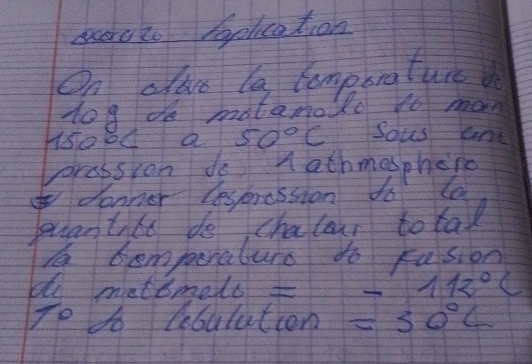 exercice d'aplication
On élève la temperature de
10g de metamole de moin
150°C a 50°C Sous une
pression de 1 athmosphère
donner l'espression de la
quantité de chaleur total
la temperature de Fusion
du metemole = - 112°C
T° de l'ebulution = 30°C